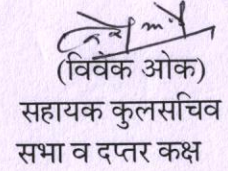 (विवेक ओक)
सहायक कुलसचिव
सभा व दप्तर कक्ष